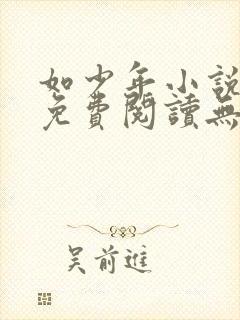 如少年小說
免費閱讀無
吴前進